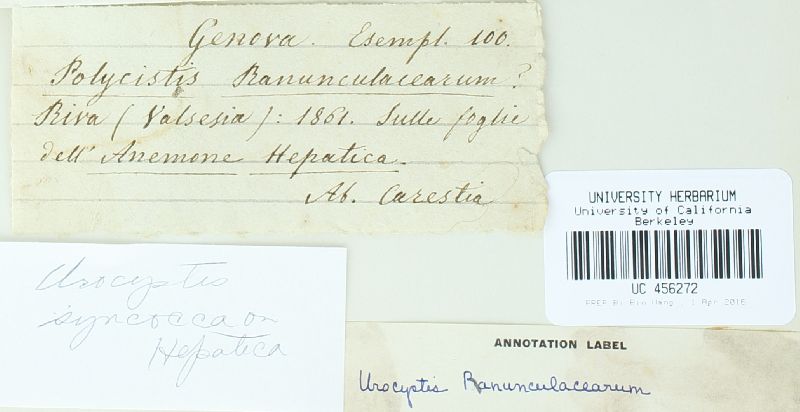 Genova. Esempl. 100.
Polycistis Ranunculacearum?
Riva (Valsesia): 1861. Sulle foglie
dell' Anemone Hepatica.
Ab. Carestia
UNIVERSITY HERBARIUM
University of California
Berkeley
UC 456272
PREP Bi Bin Wang , 1 Apr 2016
Urocystis
syncocca on
Hepatica
ANNOTATION LABEL
Urocystis Ranunculacearum